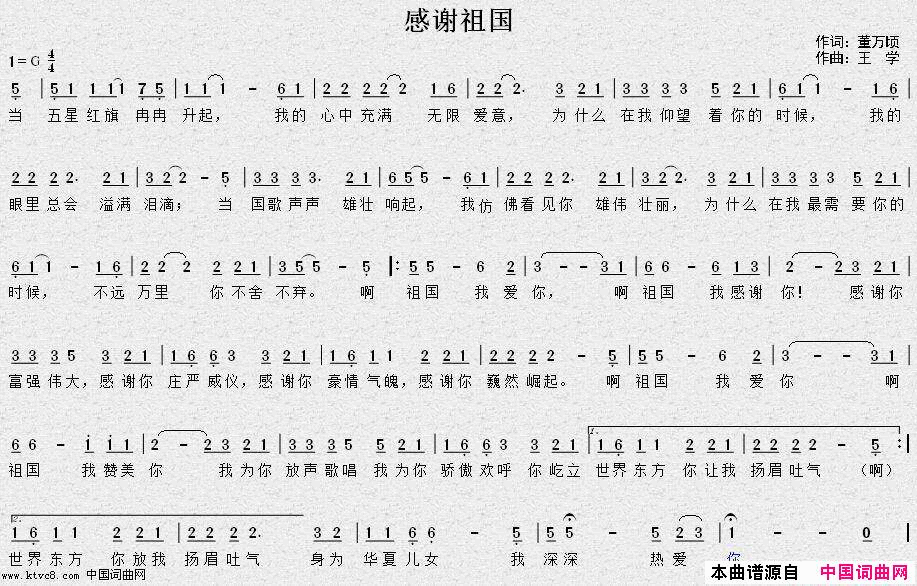 感谢祖国
1=G 4/4
作词：董万顷
作曲：王 学
5 | 5 1 1 1 1 7 5 | 1 1 1 - 6 1 | 2 2 2 2 2 1 6 | 2 2 2. 3 2 1 | 3 3 3 3 5 2 1 | 6 1 1 - 1 6 |
当 五星红旗 冉冉 升起， 我的 心中充满 无限 爱意， 为什么 在我仰望 着你的 时候， 我的
2 2 2 2. 2 1 | 3 2 2 - 5 | 3 3 3 3. 2 1 | 6 5 5 - 6 1 | 2 2 2 2. 2 1 | 3 2 2 3 2 1 | 3 3 3 3 5 2 1 |
眼里总会 溢满 泪滴； 当 国歌声声 雄壮 响起， 我仿 佛看见你 雄伟 壮丽， 为什么 在我最需 要你的
6 1 1 - 1 6 | 2 2 2 2 2 1 | 3 5 5 - 5 |: 5 5 - 6 2 | 3 - - 3 1 | 6 6 - 6 1 3 | 2 - 2 3 2 1 |
时候， 不远 万里 你不舍 不弃。 啊 祖国 我爱 你， 啊 祖国 我感谢 你！ 感谢你
3 3 3 5 3 2 1 | 1 6 6 3 3 2 1 | 1 6 1 1 2 2 1 | 2 2 2 2 - 5 | 5 5 - 6 2 | 3 - - 3 1 |
富强伟大，感谢你 庄严威仪，感谢你 豪情气魄，感谢你 巍然崛起。 啊 祖国 我爱 你 啊
6 6 - 1 1 1 | 2 - 2 3 2 1 | 3 3 3 5 5 2 1 | 1 6 6 3 3 2 1 | 1. 1 6 1 1 2 2 1 | 2 2 2 2 - 5 :|
祖国 我赞美 你 我为你 放声歌唱 我为你 骄傲欢呼 你屹立 世界东方 你让我 扬眉吐气 （啊）
2. 1 6 1 1 2 2 1 | 2 2 2 2. 3 2 | 1 1 6 6 - 5 | 5 5 - 5 2 3 | 1 - - 0 |
世界东方 你放我 扬眉吐气 身为 华夏儿女 我 深深 热爱 你
www.ktvc8.com 中国词曲网
本曲谱源自 中国词曲网